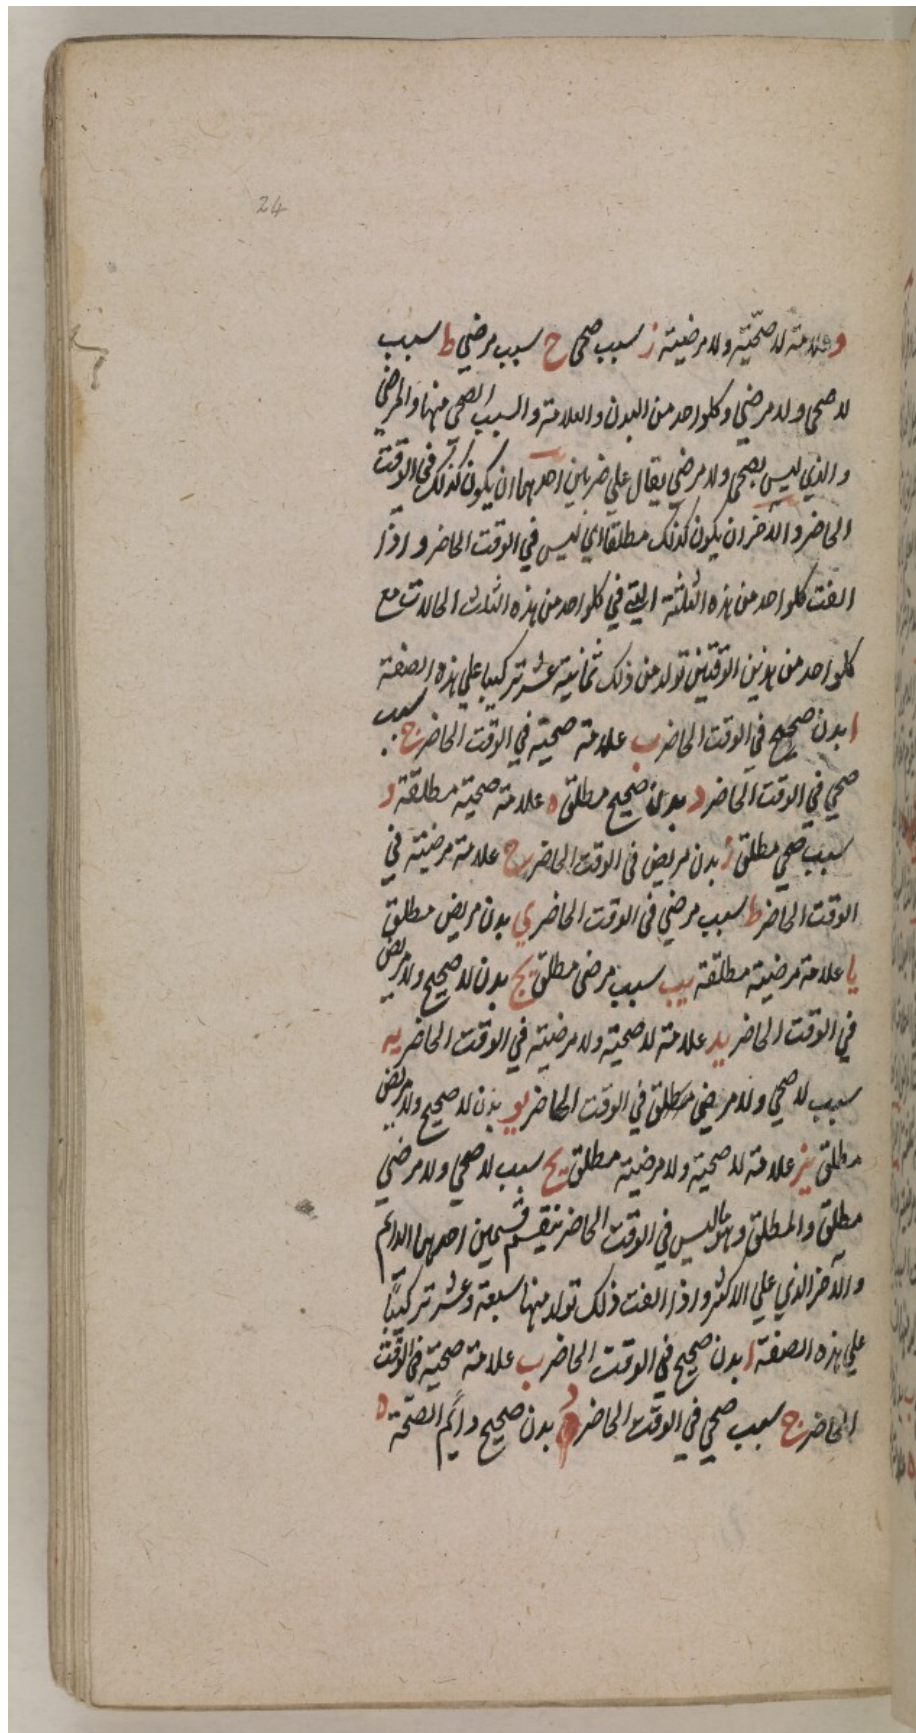 24
و علامة لا صحّيّة ولا مرضية ز سبب صحى ح سبب مرضي ط سبب
لا صحي ولا مرضي وكلواحد من البدن والعلامة والسبب الصحى منها والمرضي
والذي ليس بصحى ولا مرضي يقال علي ضربين احدهما ان يكون كذلك في الوقت
الحاضر والآخر ان يكون كذلك مطلقا اي ليس في الوقت الحاضر واذا
الفت كلواحد من هذه الثلثة التي في كلواحد من هذه الثلث الحالات مع
كلواحد من هذين الوقتين تولد من ذلك ثمانية عشر تركيبا علي هذه الصفة
ا بدن صحيح في الوقت الحاضر ب علامة صحيّة في الوقت الحاضر ج سبب
صحي في الوقت الحاضر د بدن صحيح مطلق ه علامة صحية مطلقة و
سبب صحي مطلق ز بدن مريض في الوقت الحاضر ح علامة مرضية في
الوقت الحاضر ط سبب مرضي في الوقت الحاضر ي بدن مريض مطلق
يا علامة مرضية مطلقة يب سبب مرضى مطلق يج بدن لا صحيح ولا مريض
في الوقت الحاضر يد علامة لا صحية ولا مرضية في الوقت الحاضر يه
سبب لا صحي ولا مرضي مطلق في الوقت الحاضر يو بدن لا صحيح ولا مريض
مطلق يز علامة لا صحية ولا مرضية مطلق يح سبب لا صحي ولا مرضي
مطلق والمطلق وهو ما ليس في الوقت الحاضر ينقسم قسمين احدهما الدائم
والآخر الذي علي الاكثر واذا الفت ذلك تولد منها سبعة وعشر تركيبًا
علي هذه الصفة ا بدن صحيح في الوقت الحاضر ب علامة صحية في الوقت
الحاضر ج سبب صحي في الوقت الحاضر د بدن صحيح دائم الصّحة ه